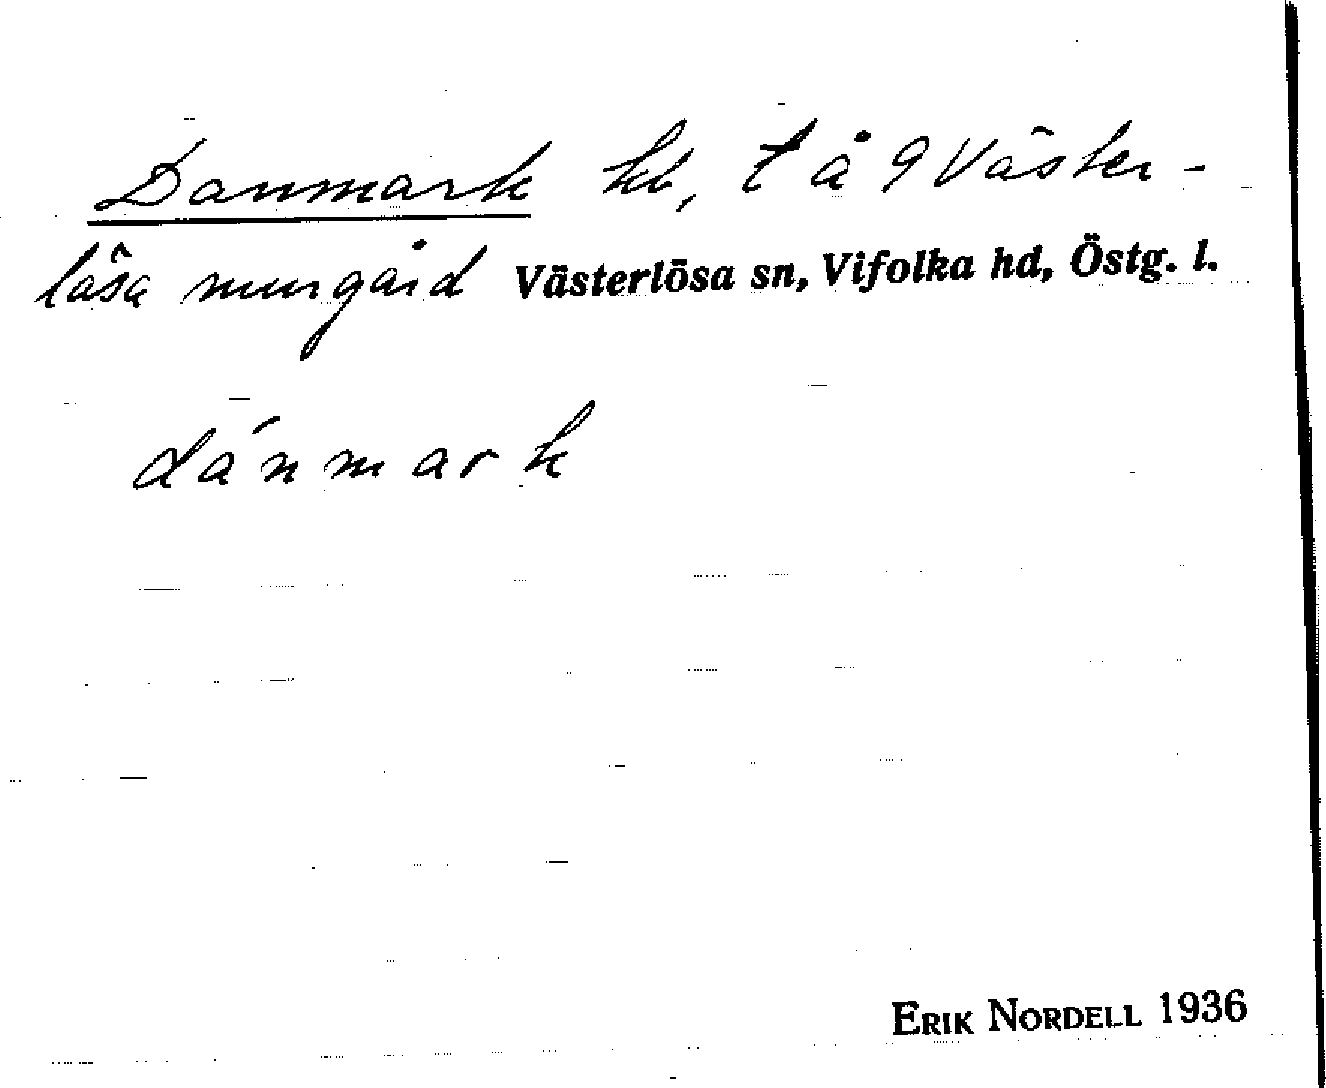 Danmark hb, t å 9 Väster-
lösa murgård Västerlösa sn, Vifolka hd, Östg. l.
dánmark
ERIK NORDELL 1936